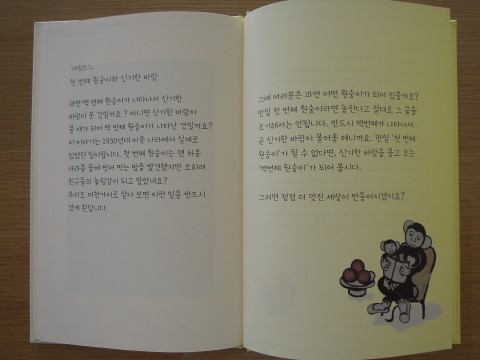 『에필로그』
첫 번째 원숭이와 신기한 바람
과연 백 번째 원숭이가 나타나서 신기한
바람이 분 것일까요? 아니면 신기한 바람이
불 때가 되어 백 번째 원숭이가 나타난 것일까요?
이 이야기는 1930년대 이웃 나라에서 실제로
있었던 일이랍니다. 첫 번째 원숭이는 맨 처음
사과를 물에 씻어 먹는 법을 발견했지만, 오히려
친구들의 놀림감이 되고 말았네요?
우리도 마찬가지로 살다 보면 이런 일을 반드시
겪게 된답니다.
그때 여러분은 과연 어떤 원숭이가 되어 있을까요?
만일 첫 번째 원숭이라면 놀린다고 절대로 그 꿈을
포기해서는 안됩니다. 반드시 백번째가 나타나서,
곧 신기한 바람이 불어올 테니까요. 만일 '첫 번째
원숭이'가 될 수 없다면, 신기한 바람을 몰고 오는
'백번째 원숭이'가 되어 봅시다.
그러면 점점 더 멋진 세상이 만들어지겠지요?